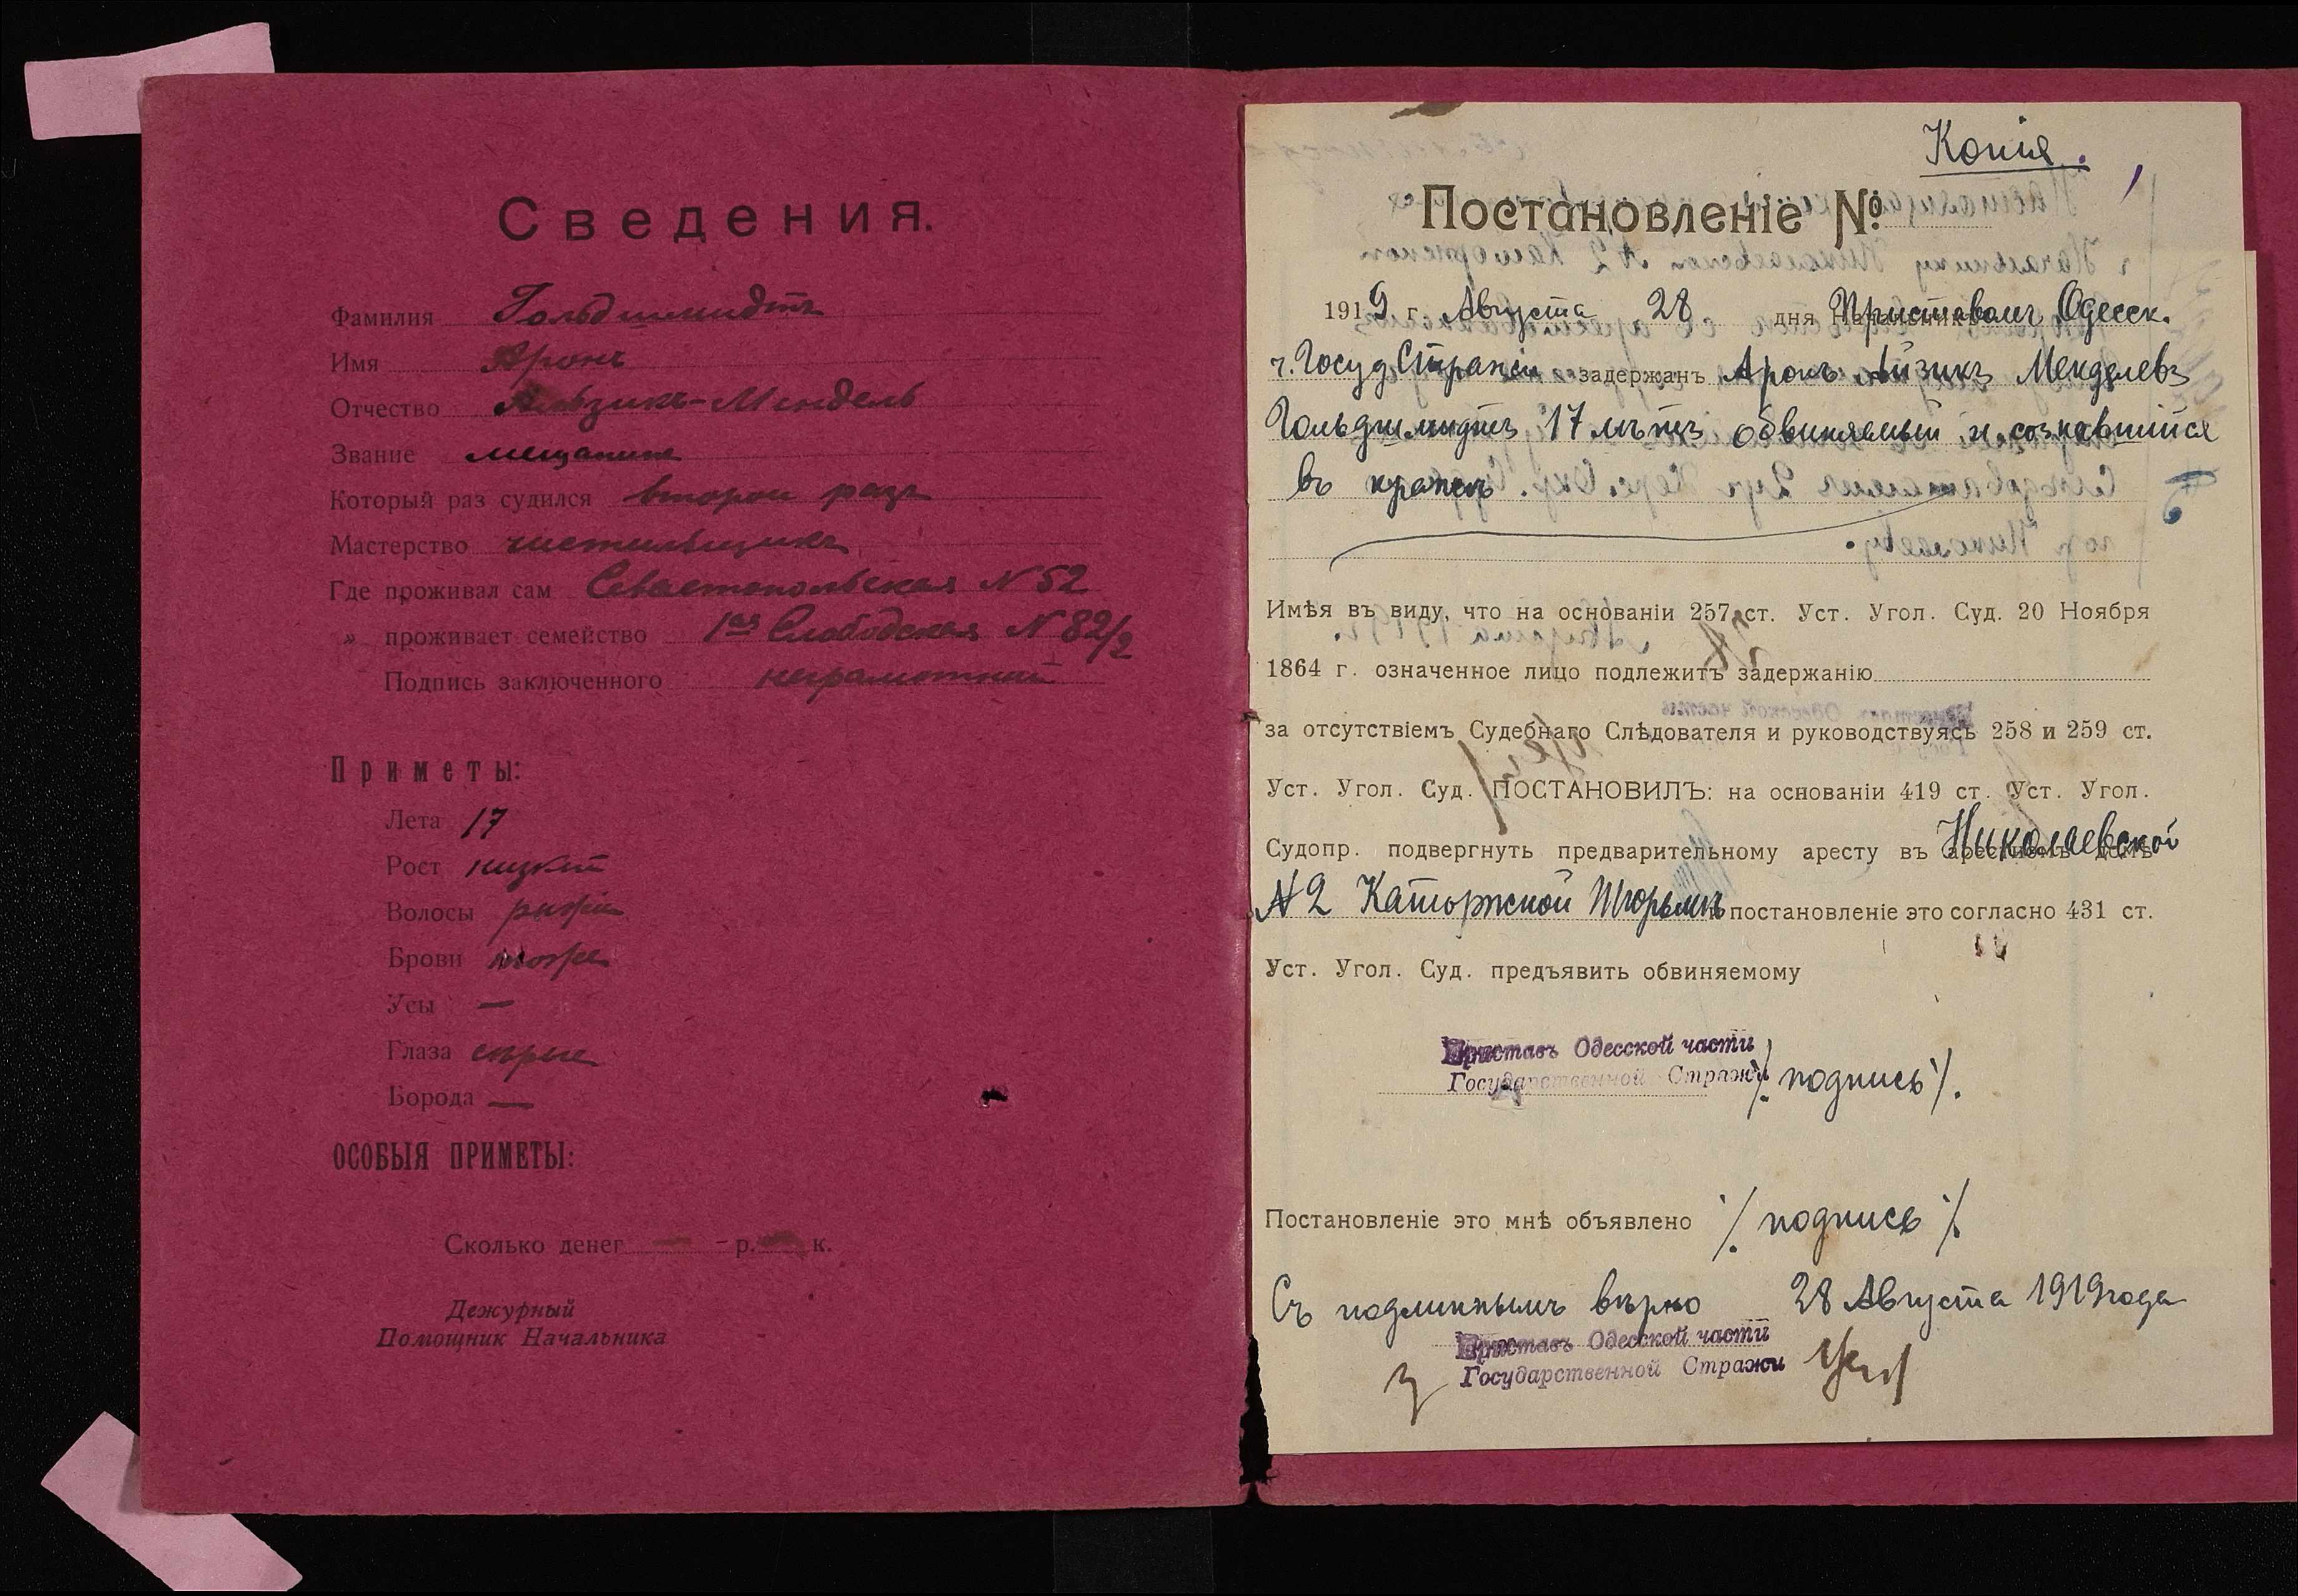 Сведения.
Фамилия Гольдшмидтъ
Имя Аронъ
Отчество Айзикъ-Мендель
Звание мещанинъ
Который раз судился второй разъ
Мастерство чистильщикъ
Где проживал сам Севастопольская N 52
» проживает семейство 1ая Слободская N 82/2
Подпись заключенного неграмотный
Приметы:
Лета 17
Рост низкий
Волосы рыжие
Брови тоже
Усы —
Глаза сѣрые
Борода —
ОСОБЫЯ ПРИМЕТЫ:
Сколько денег — р. — к.
Дежурный
Помощник Начальника
Копія.
Постановленіе №
1919 г. Августа 28 дня Приставомъ Одесск.
ч. Госуд Стражи задержанъ Аронъ Айзикъ Менделевъ
Гольдшмидтъ 17 лѣтъ обвиняемый и сознавшійся
въ кражѣ
Имѣя въ виду, что на основаніи 257 ст. Уст. Угол. Суд. 20 Ноября
1864 г. означенное лицо подлежитъ задержанію
за отсутствіемъ Судебнаго Слѣдователя и руководствуясь 258 и 259 ст.
Уст. Угол. Суд. ПОСТАНОВИЛЪ: на основаніи 419 ст. Уст. Угол.
Судопр. подвергнуть предварительному аресту въ Николаевской
N 2 Каторжной Тюрьмѣ постановленіе это согласно 431 ст.
Уст. Угол. Суд. предъявить обвиняемому
Приставъ Одесской части
Государственной Стражи /подпись/.
Постановленіе это мнѣ объявлено /подпись/.
Съ подлиннымъ вѣрно 28 Августа 1919 года
Приставъ Одесской части
Государственной Стражи